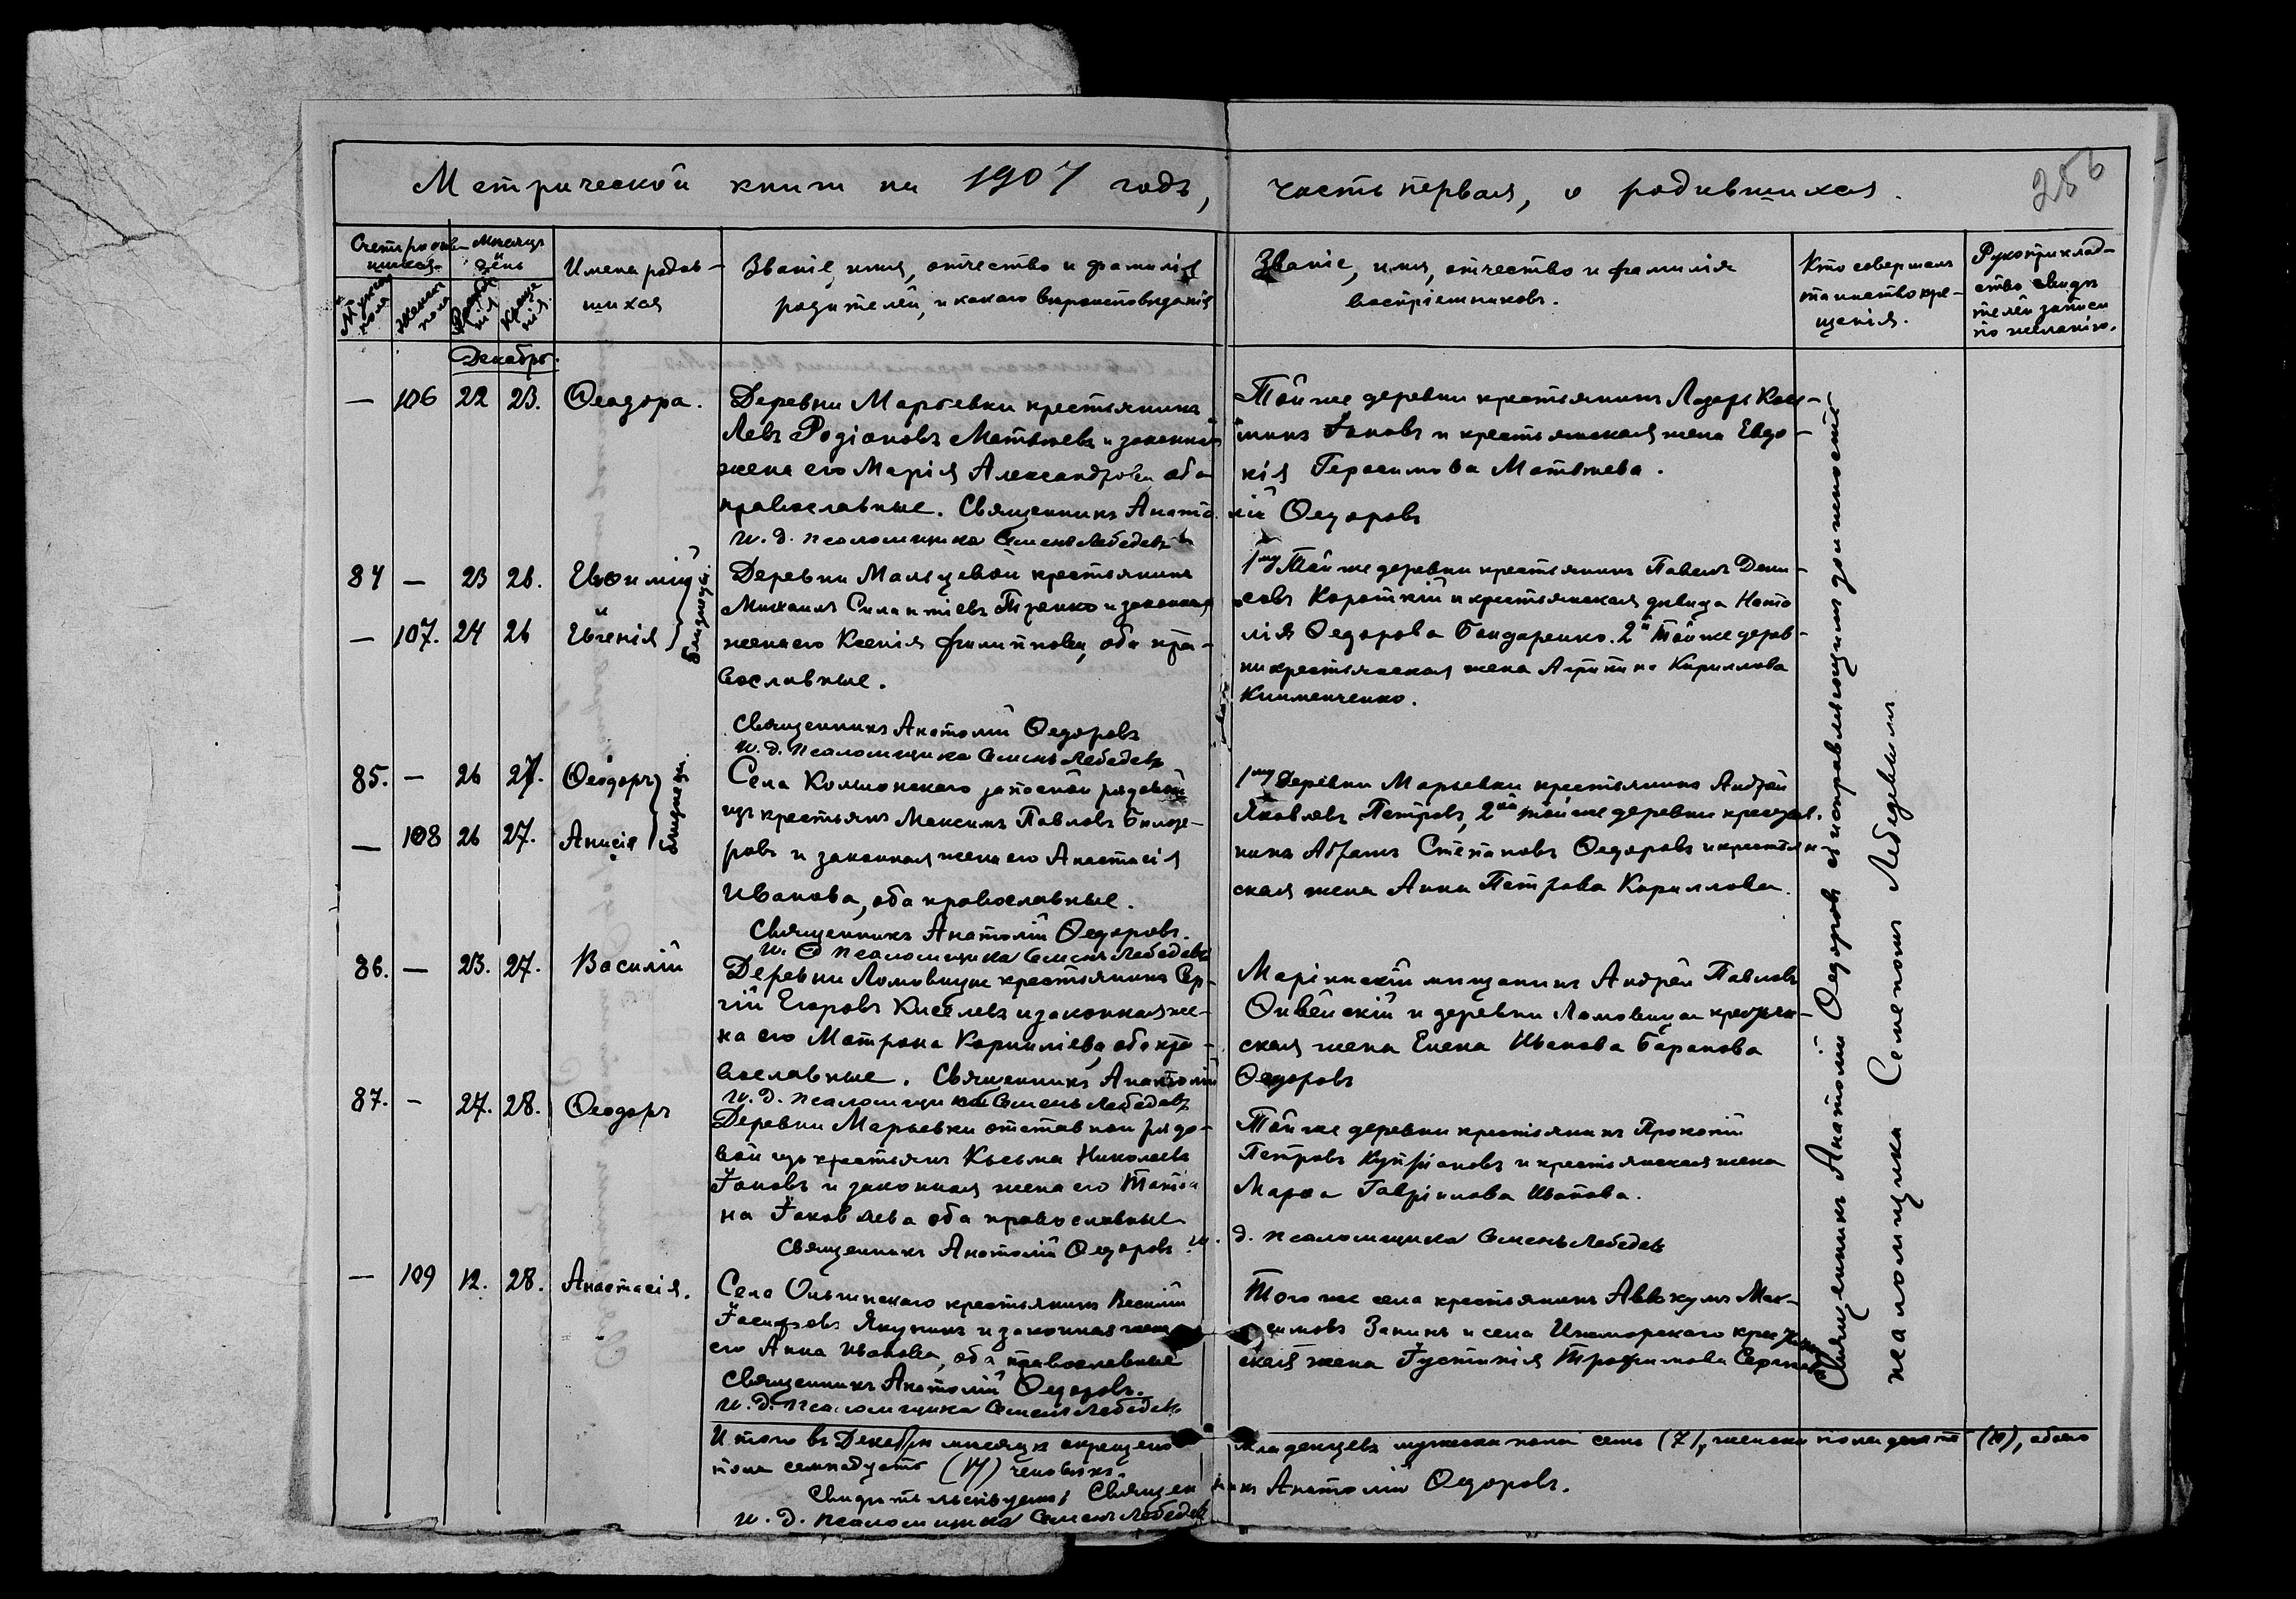 Метрической книги на 1907 годъ, часть первая, о родившихся.
256
Счетъ родив-
шихся.
Мужска
пола
женска
пола
Мѣсяцъ
день
Рожде
нія
Креще
нія.
Имена родив-
шихся
Званіе, имя, отчество и фамилія
родителей, и какого вѣроисповѣданія
Званіе, имя, отчество и фамилія
воспріемниковъ.
Кто совершалъ
таинство кре-
щенія.
Рукоприклад-
ство свидѣ
телей записи
по желанію.
Декабрь.
— 106 22 23. Ѳеодора.
Деревни Марьевки крестьянинъ
Левъ Родіоновъ Матвѣевъ и законная
жена его Марія Александрова оба
православные. Священникъ Анато
лій Ѳедоровъ
и. д. псаломщика Семенъ Лебедевъ
Той же деревни крестьянинъ Лазарь Конс-
тинъ Іоновъ и крестьянская жена Евдо-
кія Герасимова Матвѣева.
84 — 23 26. Евѳимій
— 107. 24 26 Евгенія
близнецы.
Деревни Мальцевой крестьянинъ
Михаилъ Силантіевъ Тренко и законная
жена его Ксенія Филиппова, оба пра-
вославные.
Священникъ Анатолій Ѳедоровъ
и. д. псаломщика Семенъ Лебедевъ
1му Той же деревни крестьянинъ Павелъ Дени-
совъ Короткій и крестьянская дѣвица Ната
лія Ѳедорова Бондаренко. 2й Той же дерев-
ни крестьянская жена Агрипина Кириллова
Клименченко.
85. — 26 27. Ѳеодоръ
— 108 26 27. Анисія
близнецы.
Села Колыонскаго запасной рядовой
изъ крестьянъ Максимъ Павловъ
ровъ и законная жена его Анастасія
Иванова, оба православные.
Священникъ Анатолій Ѳедоровъ.
и. д. псаломщика Семенъ Лебедевъ
1му Деревни Марьевки крестьянинъ Андрей
Яковлевъ Петровъ, 2ой той же деревни крестья.
нинъ Абрамъ Степановъ Ѳедоровъ и крестьян-
ская жена Анна Петрова Кориллова.
86. — 23. 27. Василій
Деревни Ломовицы крестьянинъ Сер-
гій Егоровъ Киселевъ и законная же-
на его Матрона Корниліева, оба пра-
вославные. Священникъ Анатолій
Ѳедоровъ
и. д. псаломщика Семенъ Лебедевъ
Маріинскій мѣщанинъ Андрей Павловъ
и деревни Ломовицы крестьян-
ская жена Елена Иванова Баранова
87. — 27. 28. Ѳеодоръ
Деревни Марьевки отставной рядо-
вой изъ крестьянъ Косьма Николаевъ
Іоновъ и законная жена его Татіа
на Іаковлева оба православные
Священникъ Анатолій Ѳедоровъ. и. д. псаломщика Семенъ Лебедевъ
Той же деревни крестьянинъ Прокопій
Петровъ Купріановъ и крестьянская жена
Марѳа Гавріилова Иванова.
— 109 12. 28. Анастасія.
Села Ольгинскаго крестьянинъ Василій
Іосифовъ Якунинъ и законная жена
его Анна Иванова, оба православные
Священникъ Анатолій Ѳедоровъ.
и. д. псаломщика Семенъ Лебедевъ
Того же села крестьянинъ Аввакумъ Мак-
симовъ Занинъ и села Ижморскаго крестьян
ская жена Іустинія Трофимова
Священникъ Анатолій Ѳедоровъ съ исправляющимъ должность
псаломщика Семеномъ Лебедевымъ
Итого въ Декабрѣ мѣсяцѣ окрещено младенцевъ мужска пола семь (7), женска пола десять (10), обоего
пола семнадцать (17) человѣкъ.
Свидѣтельствуютъ: Священникъ Анатолій Ѳедоровъ.
и. д. псаломщика Семенъ Лебедевъ